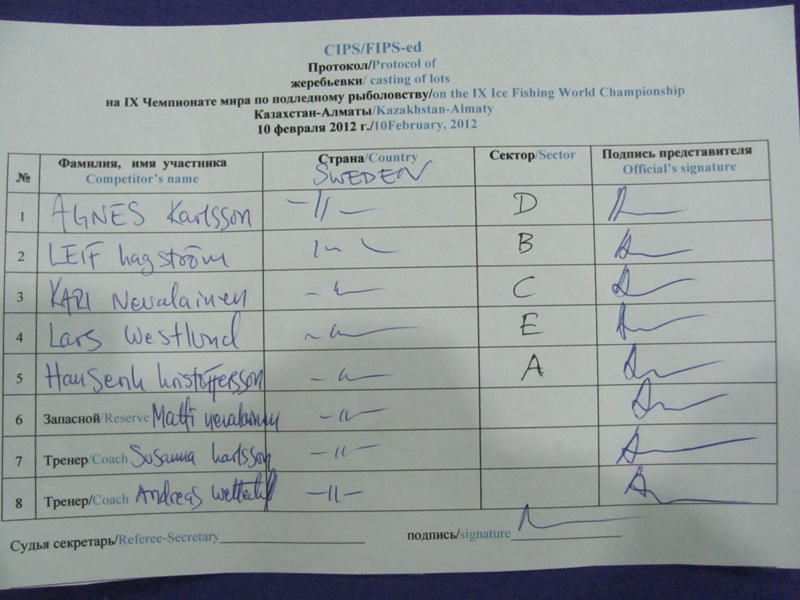 CIPS/FIPS-ed
Протокол/Protocol of
жеребьевки/ casting of lots
на IX Чемпионате мира по подледному рыболовству/on the IX Ice Fishing World Championship
Казахстан-Алматы/Kazakhstan-Almaty
10 февраля 2012 г./10February, 2012
№ Фамилия, имя участника Страна/Country Сектор/Sector Подпись представителя
Competitor's name SWEDEN Official's signature
1 AGNES Karlsson -11- D
2 LEIF hagström B
3 KARI Nevalainen C
4 Lars Westlund E
5 kristoffersson A
6 Запасной/Reserve Matti nevalainen -11-
7 Тренер/Coach Susanna karlsson -11-
8 Тренер/Coach Andreas -11-
Судья секретарь/Referee-Secretary подпись/signature